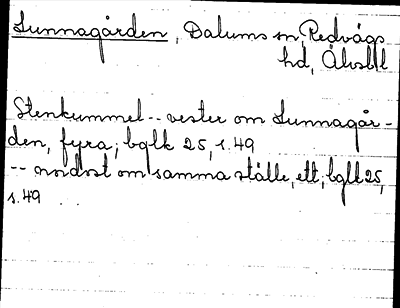 Sunnagården, Dalums sn, Redvägs
hd, Älvsbl
Stenkummel -- vester om Sunnagår-
den, fyra; bglk 25, s. 49
-- nordost om samma ställe, ett; bglk 25,
s. 49